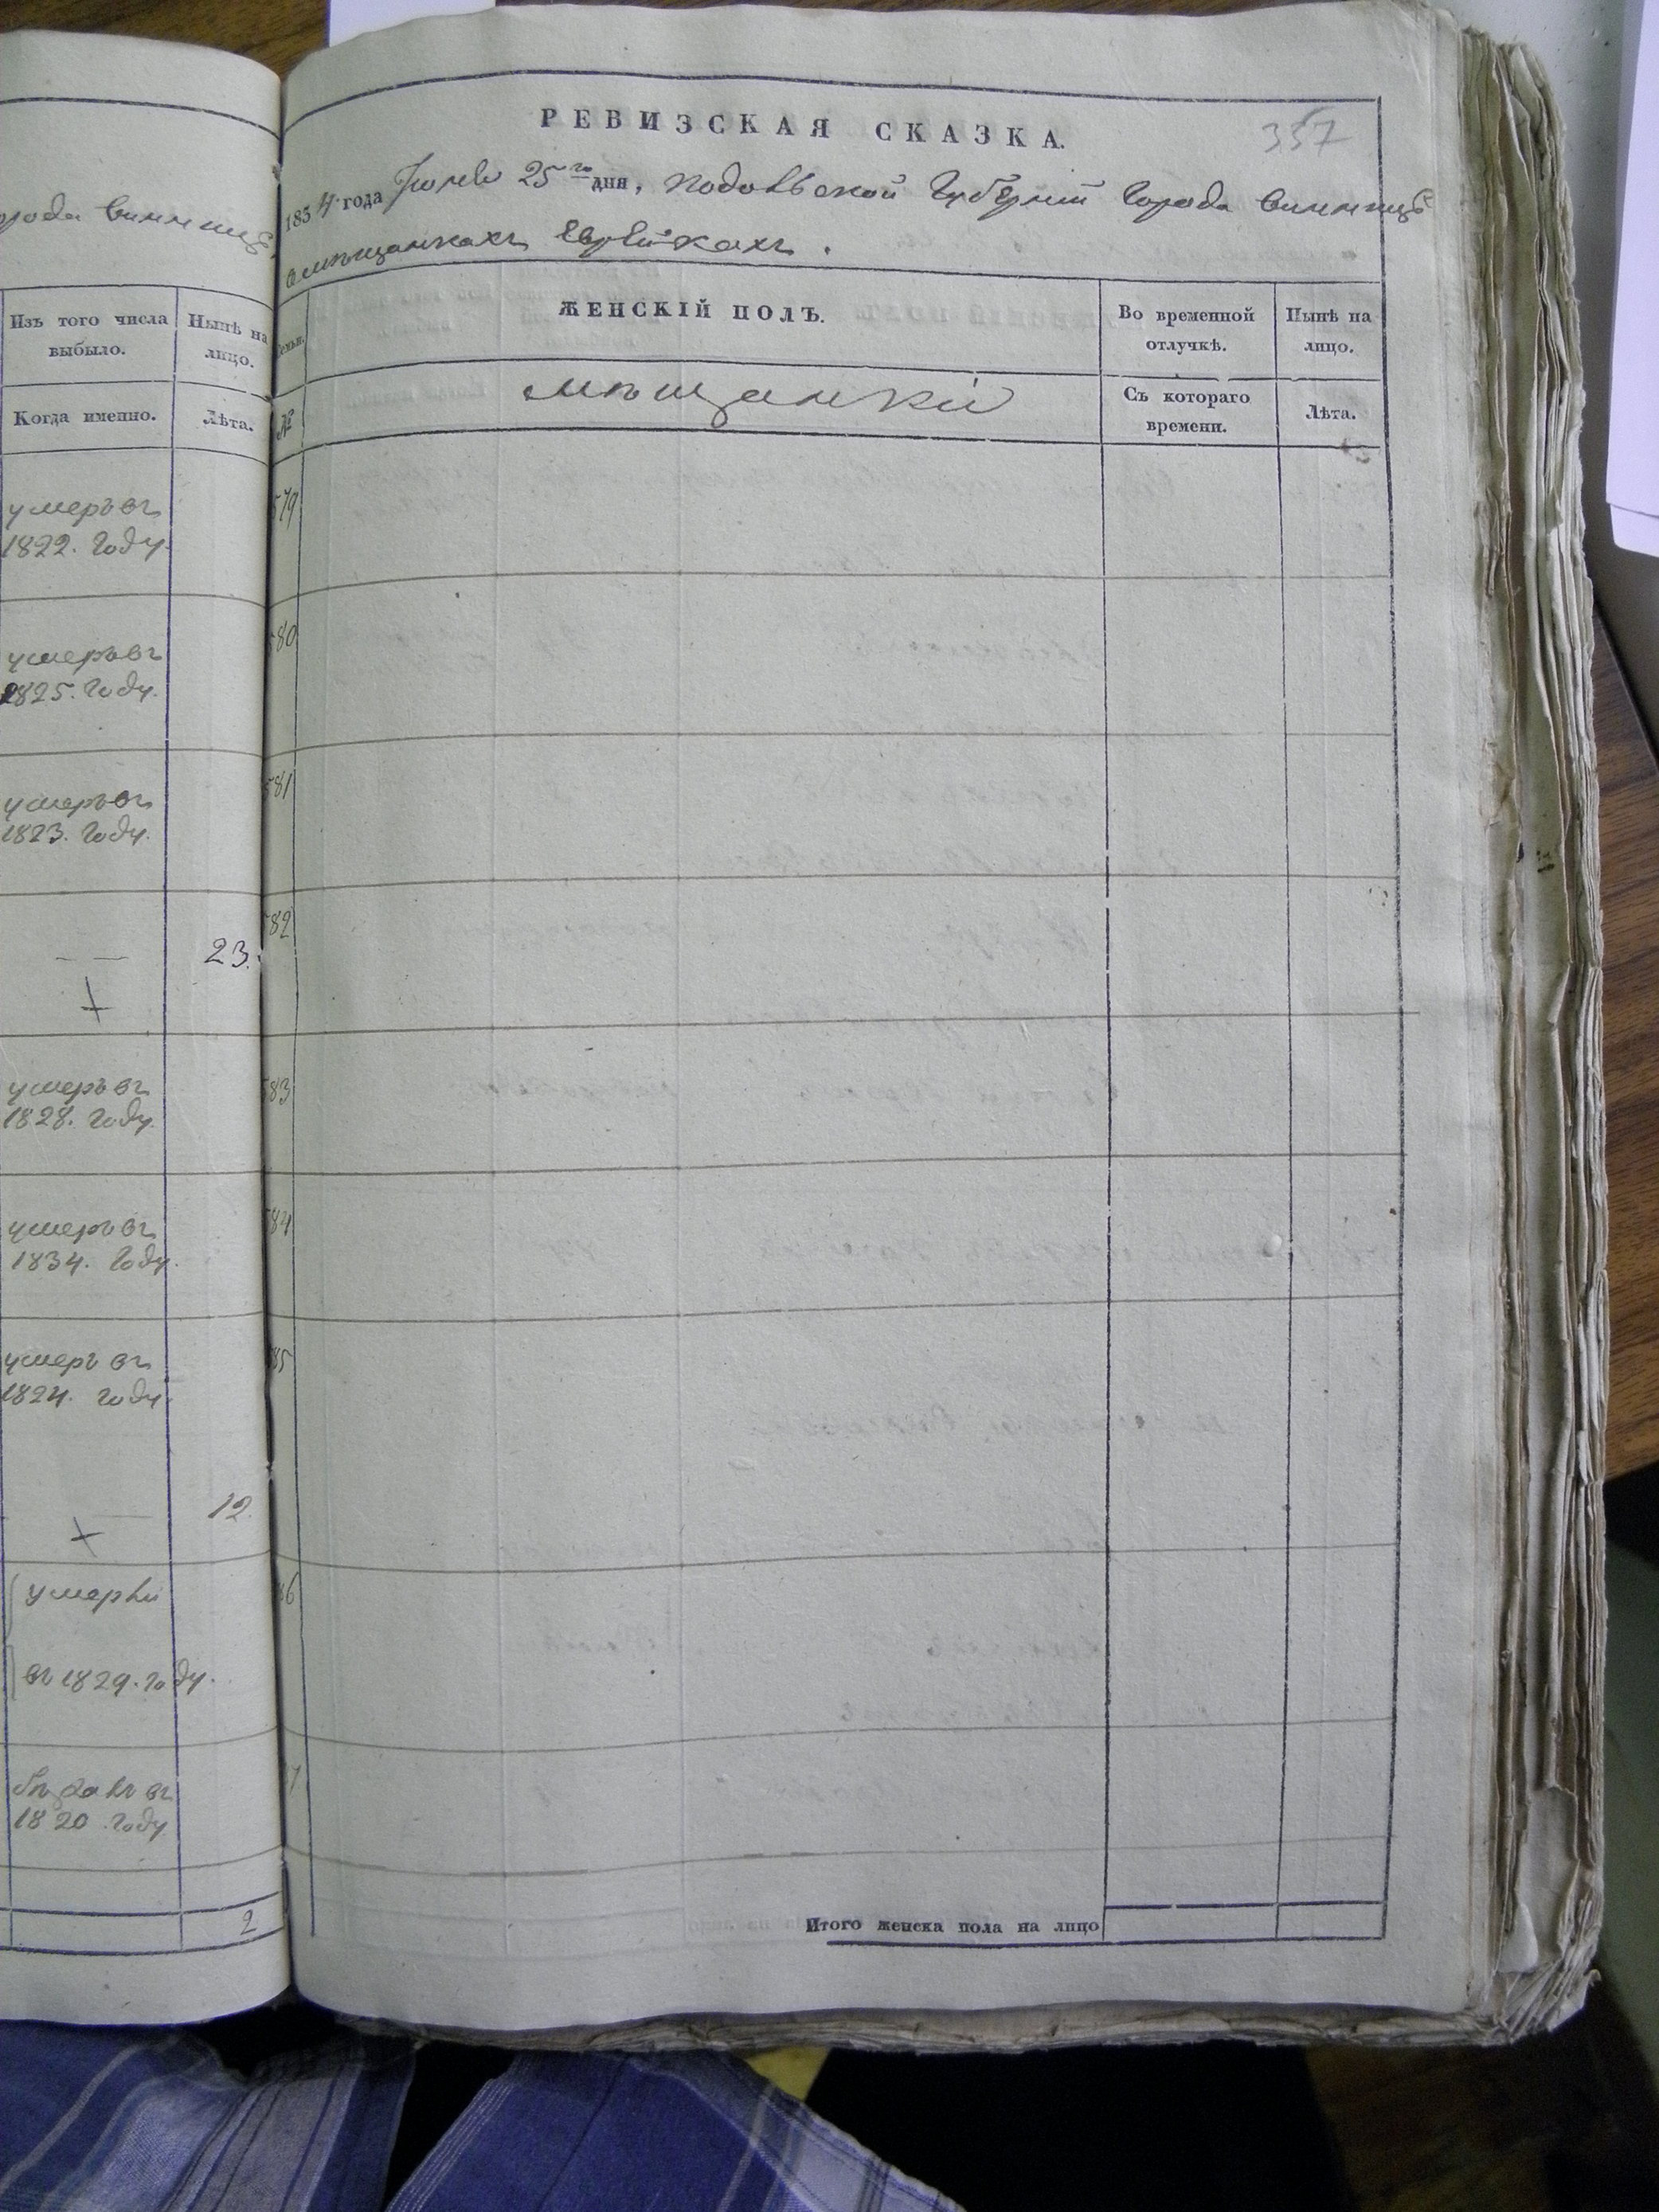 орода Винницѣ
Изъ того числа выбыло.
Нынѣ на лицо.
Когда именно.
Лѣта.
умеръ въ
1822. Году.
умеръ въ
1825. Году.
умеръ въ
1823. Году.
23.
умеръ въ
1828. Году.
умеръ въ
1834. Году.
умеръ въ
1824. Году.
12.
умерли
въ 1829. Году.
въ
1820. Году
2
РЕВИЗСКАЯ СКАЗКА.
357
1834 года 25го дня, Подольской Губерніи Города Винницѣ
о мѣщанкахъ Еврейкахъ.
Семьи.
ЖЕНСКІЙ ПОЛЪ.
Во временной отлучкѣ.
Нынѣ на лицо.
№
мѣщанки
Съ котораго времени.
Лѣта.
579
580
581
582
583
584
585
Итого женска пола на лицо